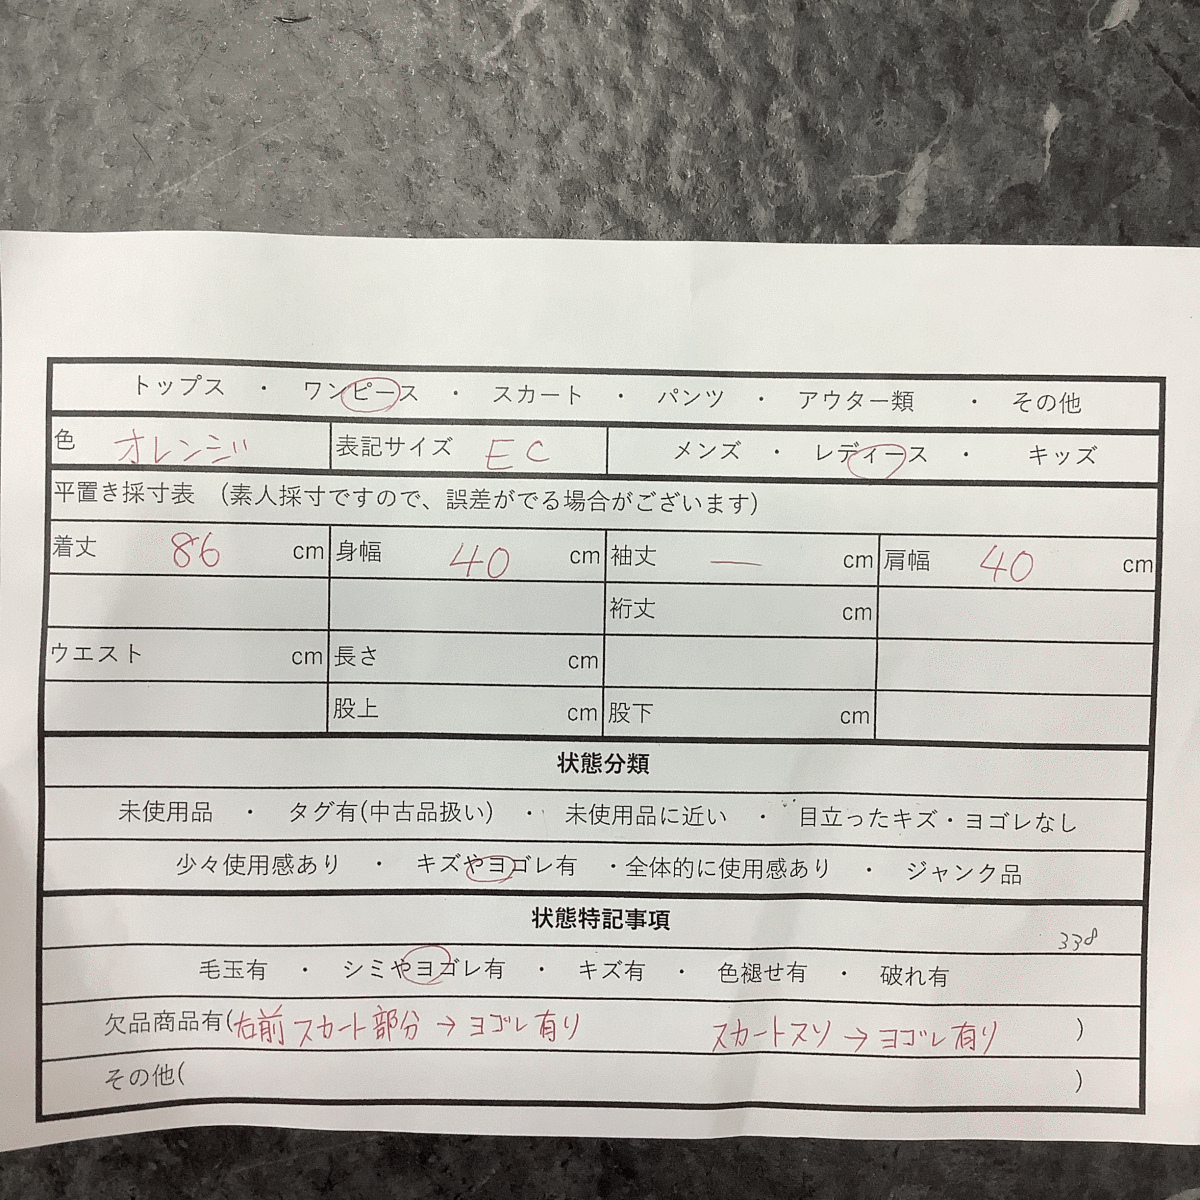 トップス ・ ワンピース ・ スカート ・ パンツ ・ アウター類 ・ その他
色 オレンジ 表記サイズ EC メンズ ・ レディース ・ キッズ
平置き採寸表 （素人採寸ですので、誤差がでる場合がございます）
着丈 86 cm 身幅 40 cm 袖丈 — cm 肩幅 40 cm
裄丈 cm
ウエスト cm 長さ cm
股上 cm 股下 cm
状態分類
未使用品 ・ タグ有(中古品扱い) ・ 未使用品に近い ・ 目立ったキズ・ヨゴレなし
少々使用感あり ・ キズやヨゴレ有 ・全体的に使用感あり ・ ジャンク品
状態特記事項
338
毛玉有 ・ シミやヨゴレ有 ・ キズ有 ・ 色褪せ有 ・ 破れ有
欠品商品有(右前スカート部分→ヨゴレ有り スカートスソ→ヨゴレ有り )
その他( )